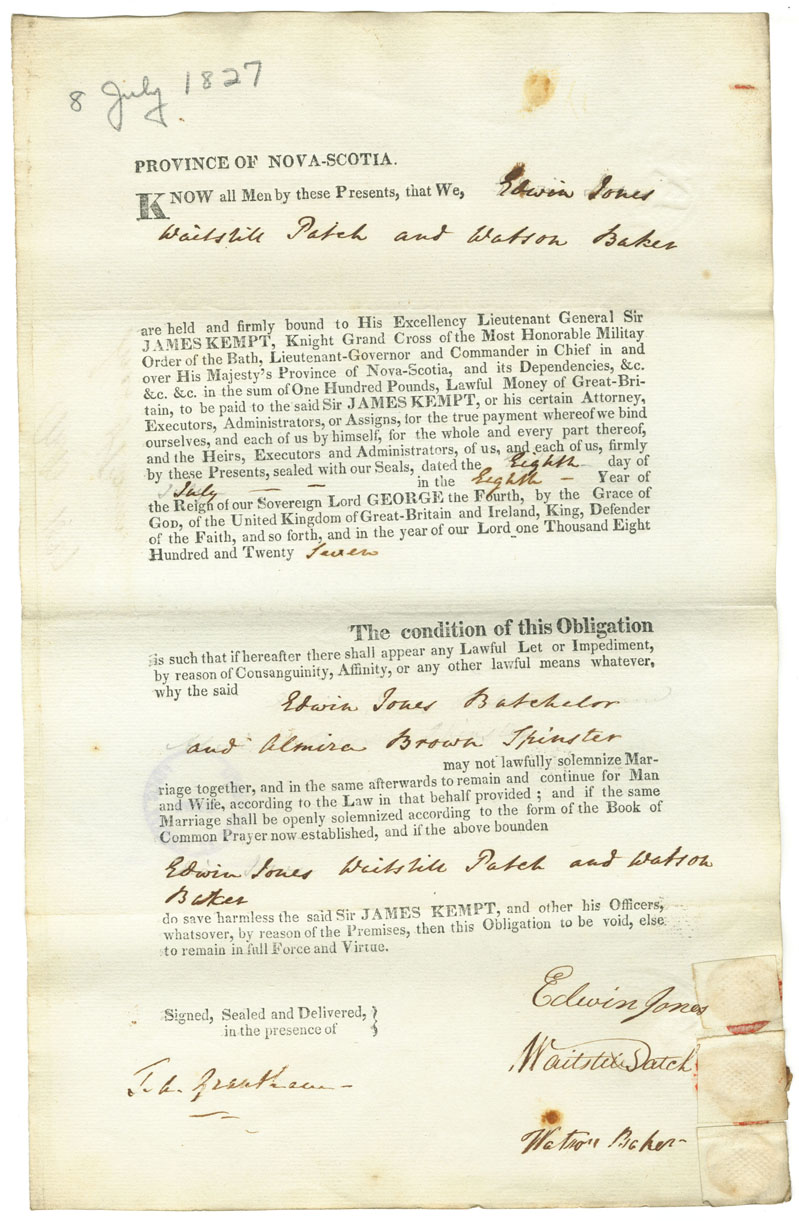 8 July 1827
PROVINCE OF NOVA-SCOTIA.
KNOW all Men by these Presents, that We, Edwin Jones
Waitstill Patch and Watson Baker
are held and firmly bound to His Excellency Lieutenant General Sir
JAMES KEMPT, Knight Grand Cross of the Most Honorable Militay
Order of the Bath, Lieutenant-Governor and Commander in Chief in and
over His Majesty's Province of Nova-Scotia, and its Dependencies, &c.
&c. &c. in the sum of One Hundred Pounds, Lawful Money of Great-Bri-
tain, to be paid to the said Sir JAMES KEMPT, or his certain Attorney,
Executors, Administrators, or Assigns, for the true payment whereof we bind
ourselves, and each of us by himself, for the whole and every part thereof,
and the Heirs, Executors and Administrators, of us, and each of us, firmly
by these Presents, sealed with our Seals, dated the Eighth day of
July — — in the Eighth — Year of
the Reign of our Sovereign Lord GEORGE the Fourth, by the Grace of
GOD, of the United Kingdom of Great-Britain and Ireland, King, Defender
of the Faith, and so forth, and in the year of our Lord one Thousand Eight
Hundred and Twenty Seven
The condition of this Obligation
is such that if hereafter there shall appear any Lawful Let or Impediment,
by reason of Consanguinity, Affinity, or any other lawful means whatever,
why the said
Edwin Jones Batchelor
and Almira Brown Spinster
may not lawfully solemnize Mar-
riage together, and in the same afterwards to remain and continue for Man
and Wife, according to the Law in that behalf provided ; and if the same
Marriage shall be openly solemnized according to the form of the Book of
Common Prayer now established, and if the above bounden
Edwin Jones Waitstill Patch and Watson
Baker
do save harmless the said Sir JAMES KEMPT, and other his Officers,
whatsover, by reason of the Premises, then this Obligation to be void, else
to remain in full Force and Virtue.
Edwin Jones
Signed, Sealed and Delivered,
in the presence of
Waitstill Patch
Watson Baker